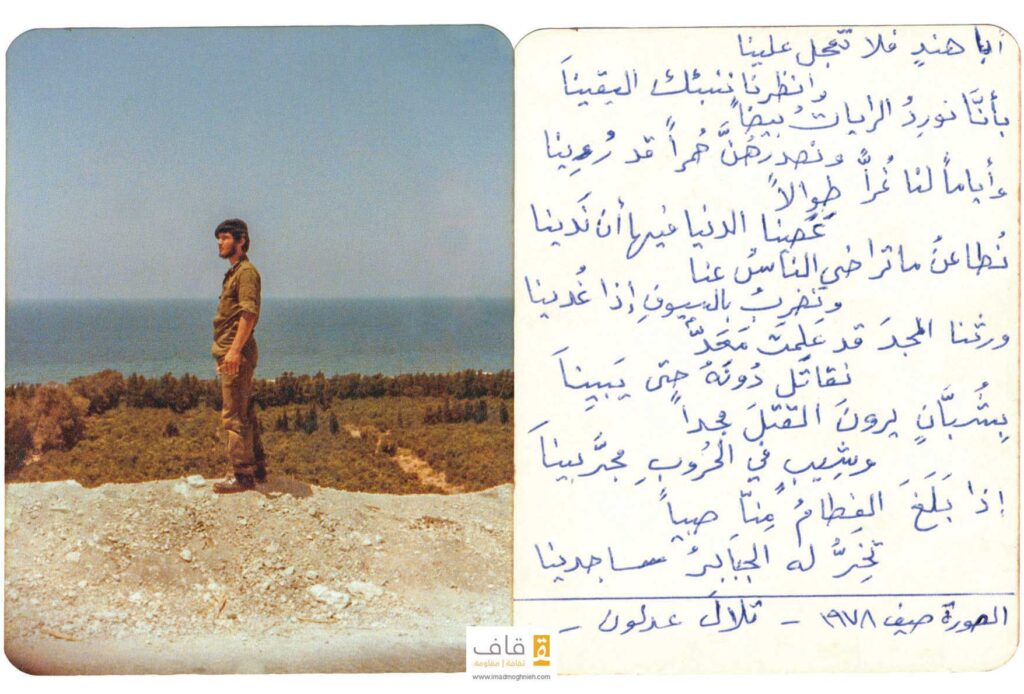 أبا هندٍ فلا تعجل علينا
وانظرنا ننبئك اليقيناَ
بأنَّا نوردُ الراياتُ بيضاً
ونصدرهُنَّ حُمراً قد رُوِينا
وأياماً لنا غُراًّ طِوالاً
عَصينا الدنيا فيها أن نَدينا
نُطاعنُ ما تراضى الناسُ عنا
ونضربُ بالسيوفِ إذا غُدينا
ورثنا المجدَ قد عَلِمَتْ مَعَدٌّ
نقاتل دُونَهُ حتى يَبيناَ
بِشُبَّانٍ يرونَ القتلَ مجداً
وشِيبٍ في الحُروبِ مجرَّبيناَ
إذا بَلَغَ الفِطامُ مِنّا صبياً
تخِرُّ له الجبَابرُ ساجدينا
الصورة صيف ١٩٧٨ - تلال عدلون -
قاف
ثقافة | مقاومة
www.imadmoghnieh.com